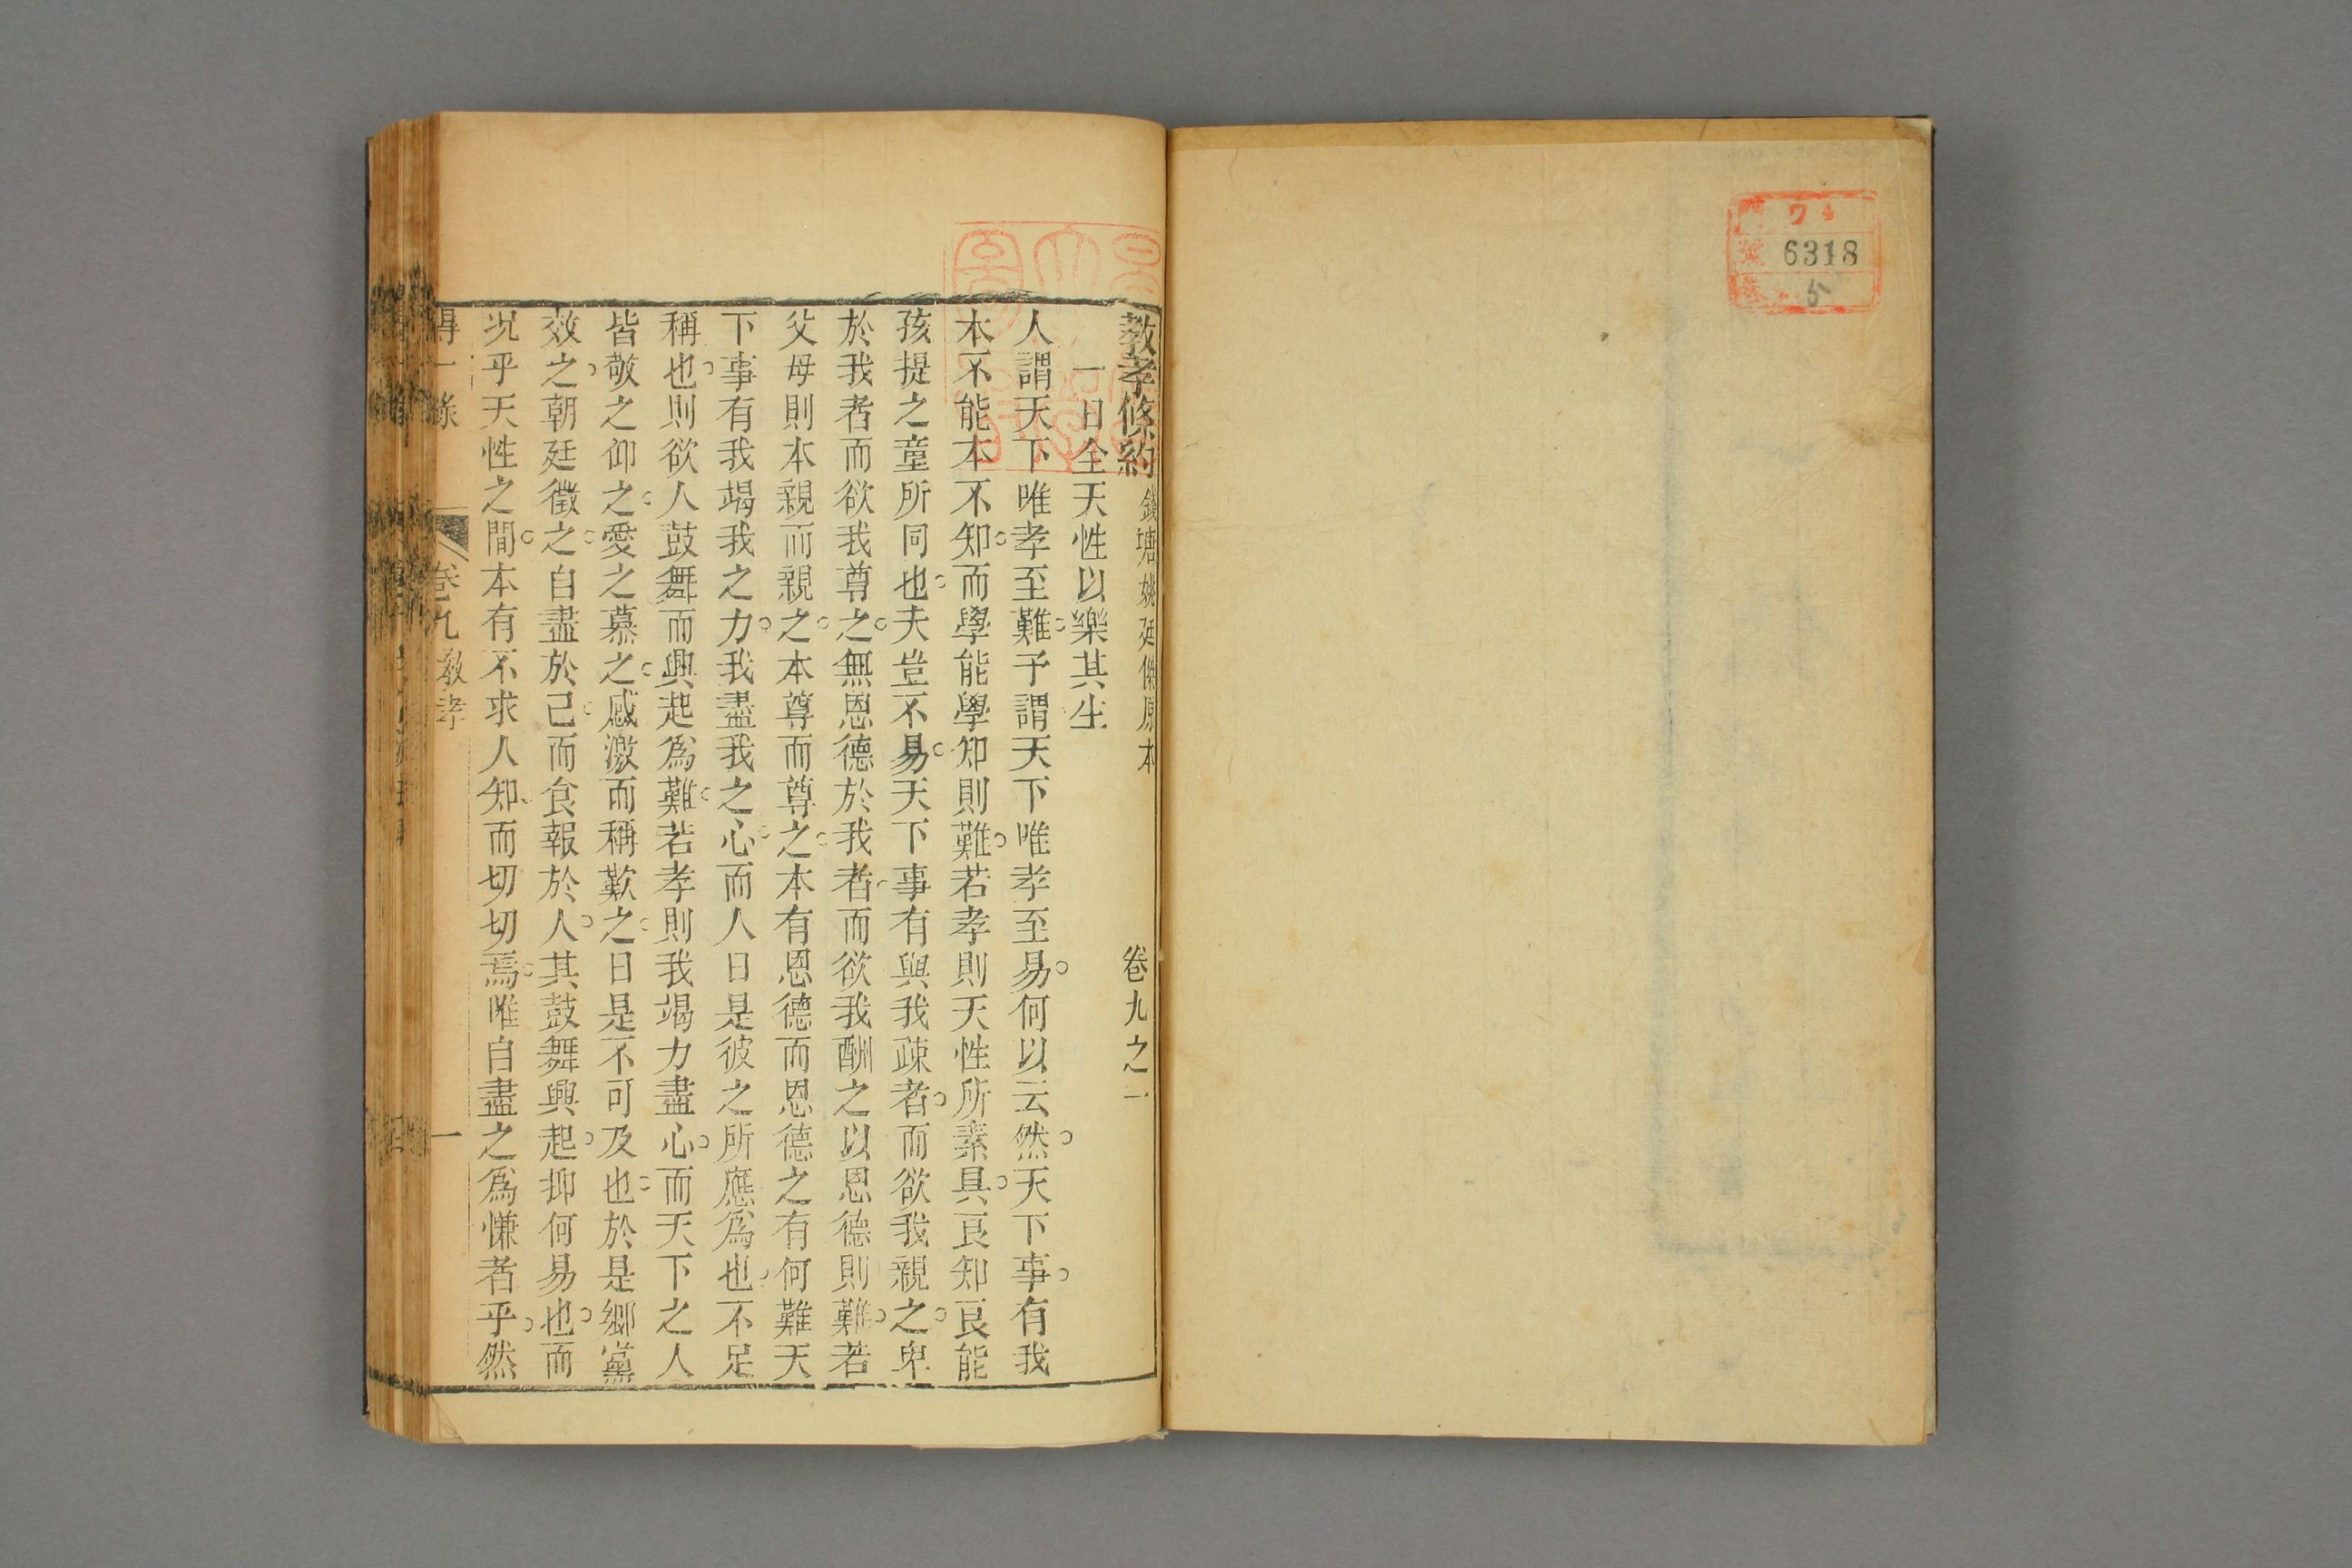 ワ4
號 6318
卷 5
教孝條約 錢塘姚廷傑原本 卷九之一
一曰全天性以樂其生
人謂天下唯孝至難。予謂天下唯孝至易。何以云然。天下事。有我
本不能本不知。而學能學知則難。若孝則天性所素具。良知良能
孩提之童所同也。夫豈不易。天下事有與我疎者。而欲我親之。卑
於我者而欲我尊之。無恩德於我者。而欲我酬之以恩德則難。若
父母則本親而親之。本尊而尊之。本有恩德而恩德之有何難天
下事有我竭我之力。我盡我之心。而人曰是彼之所應爲也。不足
稱也。則欲人鼓舞而興起爲難。若孝則我竭力盡心。而天下之人
皆敬之仰之。愛之慕之。感激而稱歎之。曰是不可及也。於是鄉黨
效之。朝廷徵之。自盡於己。而食報於人。其鼓舞興起。抑何易也。而
況乎天性之間。本有不求人知、而切切焉。唯自盡之爲慊者乎。然
得一錄 卷九 教孝 一